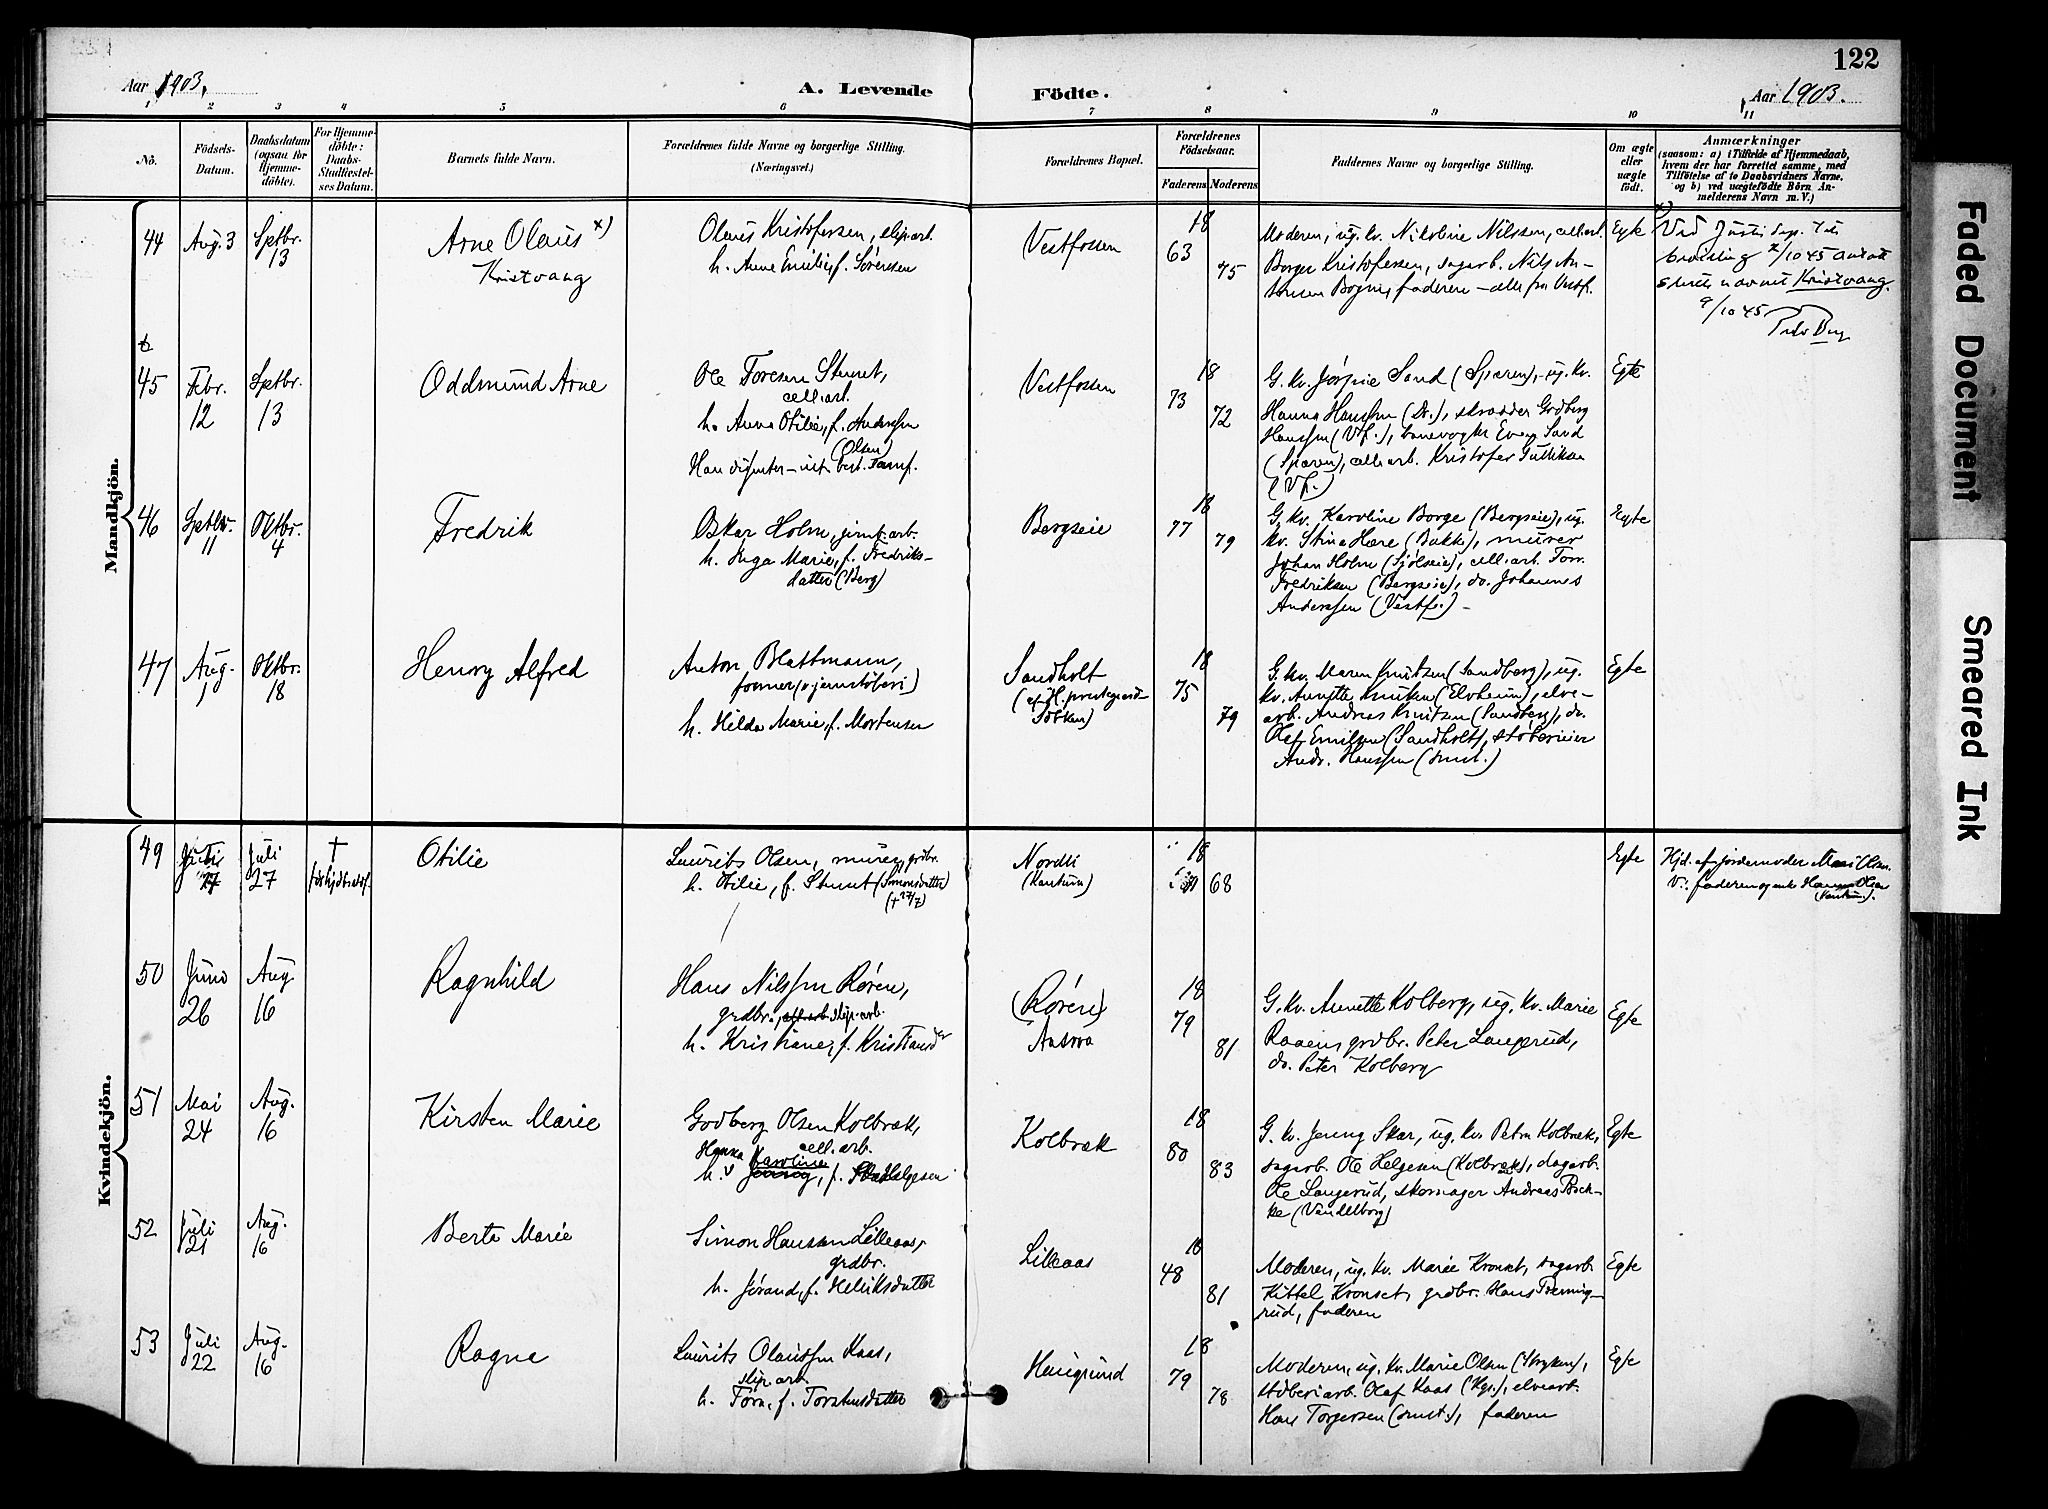 122
Aar 1903.
A. Levende Födte.
Aar 1903.
1 2 3 4 5 6 7 8 9 10 11
No.
Födsels-
Datum.
Daabsdatum
(ogsaa for
Hjemme-
döbte).
For Hjemme-
döbte:
Daabs-
Stadfæstel-
ses Datum.
Barnets fulde Navn.
Forældrenes fulde Navne og borgerlige Stilling.
(Næringsvei.)
Forældrenes Bopæl.
Forældrenes
Fødselsaar.
Faderens Moderens
Faddernes Navne og borgerlige Stilling.
Om ægte
eller
uægte
födt.
Anmærkninger
(saasom: a) i Tilfælde af Hjemmedaab,
hvem der har forrettet samme, med
Tilföielse af to Daabsvidners Navne,
og b) ved uægtefödte Börn An-
melderens Navn m. V.)
Mandkjön.
44 Aug. 3 Sptbr. 13
Arne Olaus x)
Kristvang
Olaus Kristofersen, slip.arb.
h. Anne Emilie, f. Sørensen
Vestfossen
18
63
75
Moderen, ug. kv. Nikoline Nilssen, cell.arb.
Borger Kristofersen, sagarb. Nils An-
faderen – alle fra Vestf.
Egte
x) Ved Justisdep.
10 45 antatt
navnet Kristvang.
9/10 45
45 Febr. 12 Sptbr. 13
Oddmund Arne
Ole Toresen Stenset,
cell.arb.
h. Anna Otilie, f. Anderssen
(Olsen)
Han dissenter
Vestfossen
18
73
72
G. kv. Jørgine Sand (Sparen), ug. kv.
Hanna Hanssen (Do.), skrædder Godberg
Hanssen (Vf.), banevogter Even Sand
(Sparen), cell.arb. Kristofer
(Vf.)
Egte
46 Sptbr. 11 Oktbr. 4
Fredrik
Oskar Holm, jernb.arb.
h. Inga Marie, f. Fredriks-
datter (Berg)
Bergseie
18
77
79
G. kv. Karoline Borge (Bergseie), ug.
kv. Stina Hære (Bakke), murer
Johan Holm (Fjølseie), cell.arb. Torv.
Fredriksen (Bergseie), do. Johannes
Anderssen (Vestf.) –
Egte
47 Aug. 1 Oktbr. 18
Henry Alfred
Anton Blattmann,
former (v. jernstøberi)
h. Hilda Marie, f. Mortensen
Sandholt
18
75
79
G. kv. Maren Knutzen (Sandberg), ug.
kv. Annette Knutzen (Elvheim), elve-
arb. Andreas Knutzen (Sandberg), do.
Olaf Emilsen (Sandholt), støberieier
Andr. Hanssen (smst.)
Egte
Kvindekjön.
49 Juli 27 Juli 27 †
Otilie
Laurits Olsen, murer, grdbr.
h. Otilie, f. Stenset (Simonsdatter)
(† 27/7)
Nordli
18
68
Egte
Hjd. af jordemoder Mari Olsen.
V.: faderen og enke Hanna Olsen
50 Juni 26 Aug 16
Ragnhild
Hans Nilssen Røren,
grdbr., slip.arb.
h. Kristiane, f. Kristiansdtr
(Røren)
18
79
81
G. kv. Annette Kolberg, ug. kv. Marie
Raaen, grdbr. Peter Langerud,
do. Peter Kolberg
Egte
51 Mai 24 Aug. 16
Kirsten Marie
Godberg Olsen Kolbræk,
cell.arb.
Hanna Karoline
h. Jenny, f. Helgesen
Kolbræk
18
80
83
G. kv. Jenny Skar, ug. kv. Petra Kolbræk,
sagarb. Ole Helgesen (Kolbræk), dagarb.
Ole Langerud, skomager Andreas Bræk-
ke (Vandelborg)
Egte
52 Juli 21 Aug. 16
Berta Marie
Simon Hansen Lilleaas,
grdbr.
h. Jørand, f. Henriksdatter
Lilleaas
18
48
81
Moderen, ug. kv. Marie Kronset, sagarb.
Kittel Kronset, grdbr. Hans Træming-
rud, faderen
Egte
53 Juli 22 Aug. 16
Ragne
Laurits Olaussen Kaas,
slip.arb.
h. Tora, f. Torstensdatter
Haugrund
18
79
78
Moderen, ug. kv. Marie Olsen (Stryken),
støberiarb. Olaf Kaas (Hgs.), elvearb.
Hans Torgersen (smst.), faderen
Egte
Faded Document
Smeared Ink